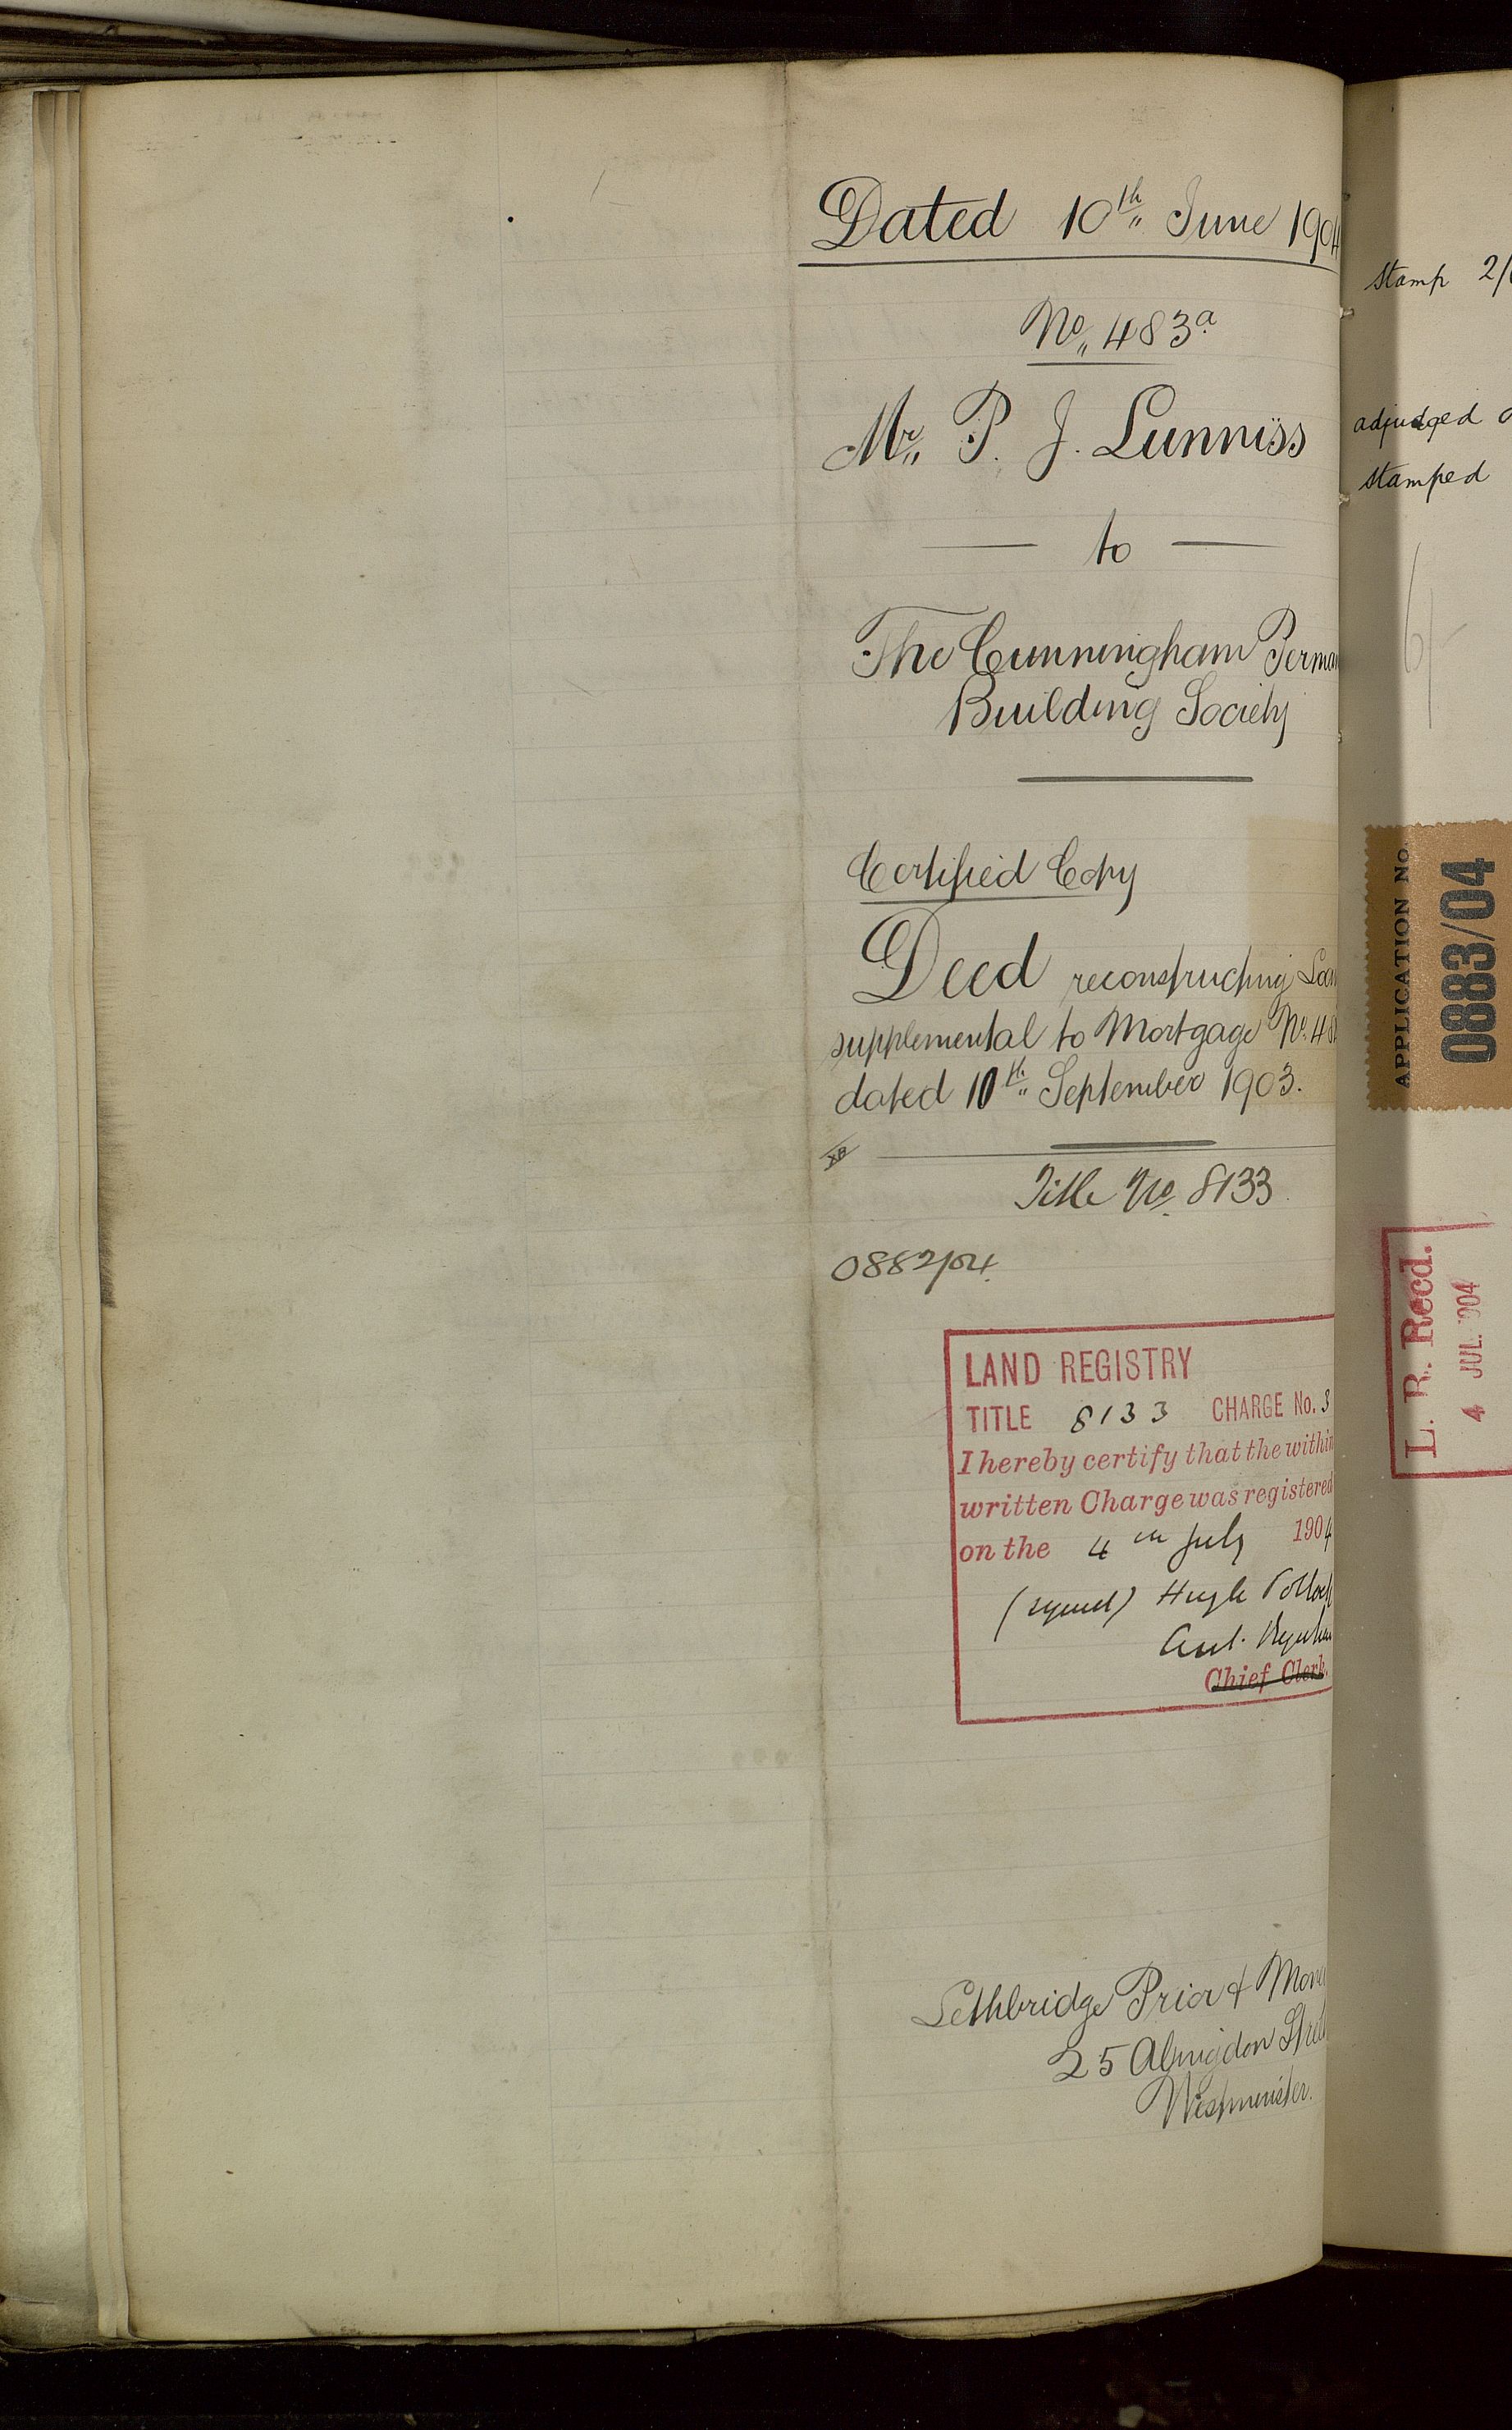 Dated 10th June 1904
No. 483a
Mr. P. J. Lunniss
to
The Cunningham Perma
Building Society
Certified Copy
Deed reconstructing Loa
supplemental to Mortgage No. 48
dated 10th September 1903.
Title No. 8133
0882/04.
LAND REGISTRY
TITLE 8133 CHARGE No. 3
I hereby certify that the within
written Charge was registered
on the 4th July 1904
(signed) Hugh Pollock
Asst. Registrar
Chief Clerk.
Lethbridge Prior &
25 Abingdon Street
Westminster.
stamp 2/
adjudged
stamped
6/-
APPLICATION No.
0883/04
L. R. Recd.
4 JUL. 904